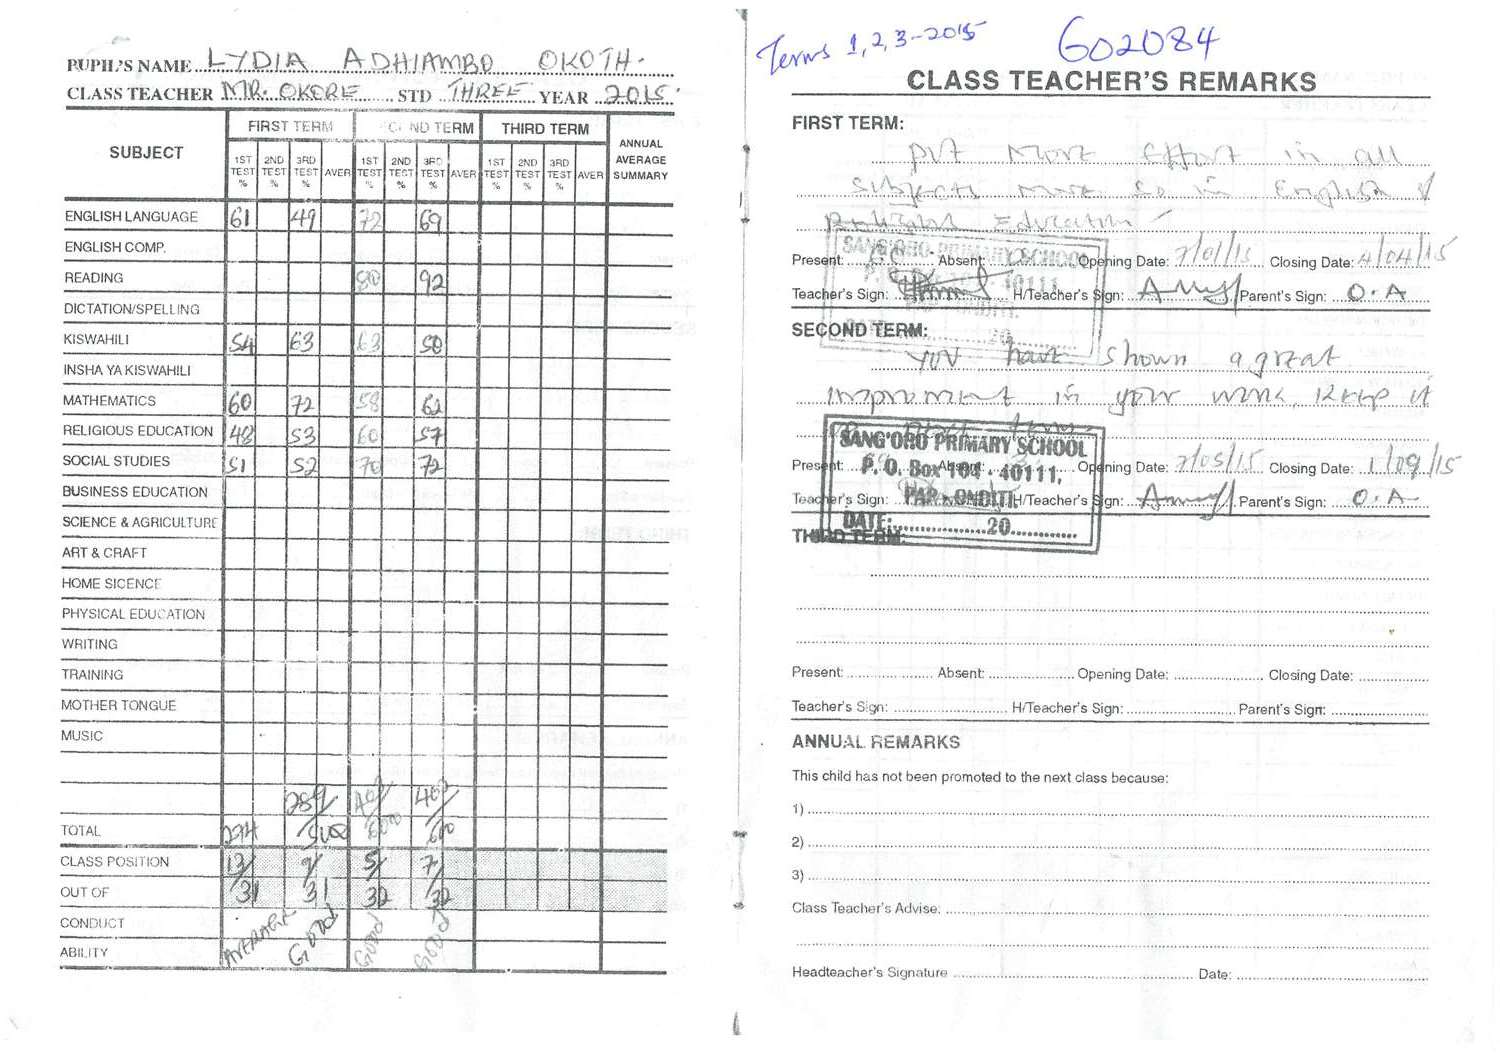 PUPIL'S NAME LYDIA ADHIAMBO OKOTH.
CLASS TEACHER MR. OKORE STD THREE YEAR 2015.
SUBJECT FIRST TERM SECOND TERM THIRD TERM ANNUAL AVERAGE SUMMARY
1ST TEST % 2ND TEST % 3RD TEST % AVER 1ST TEST % 2ND TEST % 3RD TEST % AVER 1ST TEST % 2ND TEST % 3RD TEST % AVER
ENGLISH LANGUAGE 61 49 72 69
ENGLISH COMP.
READING 80 92
DICTATION/SPELLING
KISWAHILI 54 63 63 50
INSHA YA KISWAHILI
MATHEMATICS 60 72 58 62
RELIGIOUS EDUCATION 48 53 60 57
SOCIAL STUDIES 51 52 70 72
BUSINESS EDUCATION
SCIENCE & AGRICULTURE
ART & CRAFT
HOME SICENCE
PHYSICAL EDUCATION
WRITING
TRAINING
MOTHER TONGUE
MUSIC
289 402
TOTAL 274 500 600 600
CLASS POSITION 13 9 5 7
OUT OF 31 31 32 32
CONDUCT
ABILITY AVERAGE GOOD GOOD GOOD
Terms 1,2,3-2015 G02084
CLASS TEACHER'S REMARKS
FIRST TERM:
put more effort in all
subjects more so in English &
Education
Present: Absent: Opening Date: 7/01/15 Closing Date: 4/04/15
Teacher's Sign: H/Teacher's Sign: Parent's Sign: O.A
SANG'ORO PRIMARY SCHOOL
P. O. 40111,
20
SECOND TERM:
you have shown a great
improvement in your work, keep it
SANG'ORO PRIMARY SCHOOL
P. O. Box 104 - 40111,
PAP ONDITI.
DATE: 20
Present: Absent: Opening Date: 7/05/15 Closing Date: 1/09/15
Teacher's Sign: H/Teacher's Sign: Parent's Sign: O.A
THIRD TERM:
Present: Absent: Opening Date: Closing Date:
Teacher's Sign: H/Teacher's Sign: Parent's Sign:
ANNUAL REMARKS
This child has not been promoted to the next class because:
1)
2)
3)
Class Teacher's Advise:
Headteacher's Signature Date: